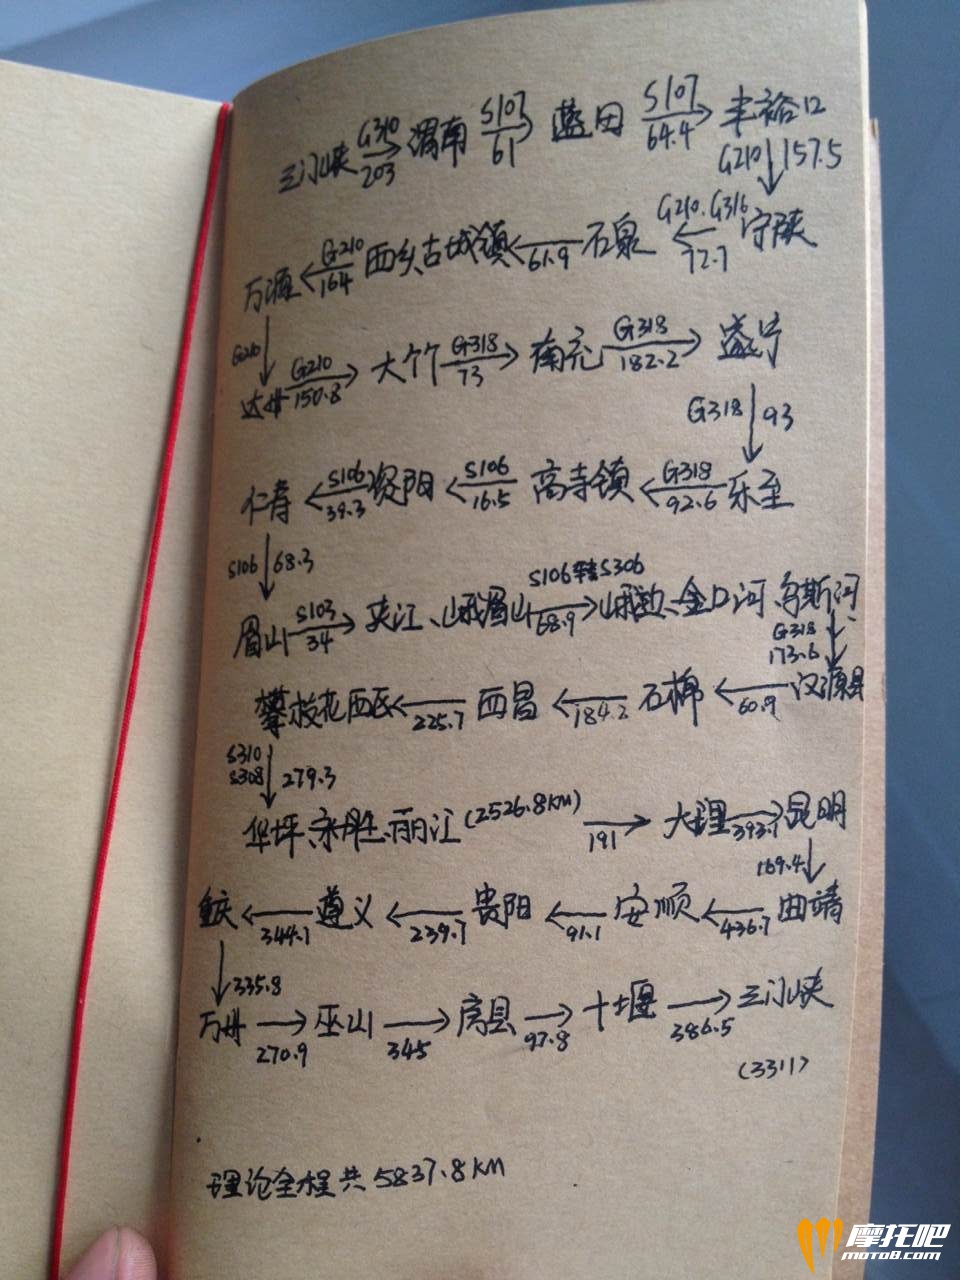 三门峡 G310 203 渭南 S107 61 蓝田 S107 64.4 丰裕口
G210 157.5
万源 G210 164 西乡古城镇 61.9 石泉 G210.G316 72.7 宁陕
G210
达州 G210 150.8 大竹 G318 73 南充 G318 182.2 遂宁
G318 93
仁寿 S106 39.3 资阳 S106 16.5 高寺镇 G318 92.6 乐至
S106 68.3
眉山 S103 34 夹江、峨眉山 S106转S306 68.9 峨边、金口河、乌斯河
G318 173.6
攀枝花西区 225.7 西昌 184.2 石棉 60.9 汉源县
S310 S308 279.3
华坪、永胜、丽江(2526.8KM) 191 大理 393.7 昆明
169.4
重庆 344.1 遵义 239.7 贵阳 91.1 安顺 436.7 曲靖
335.8
万州 270.9 巫山 345 房县 97.8 十堰 386.5 三门峡
(3311)
理论全程共5837.8KM
摩托吧
moto8.com